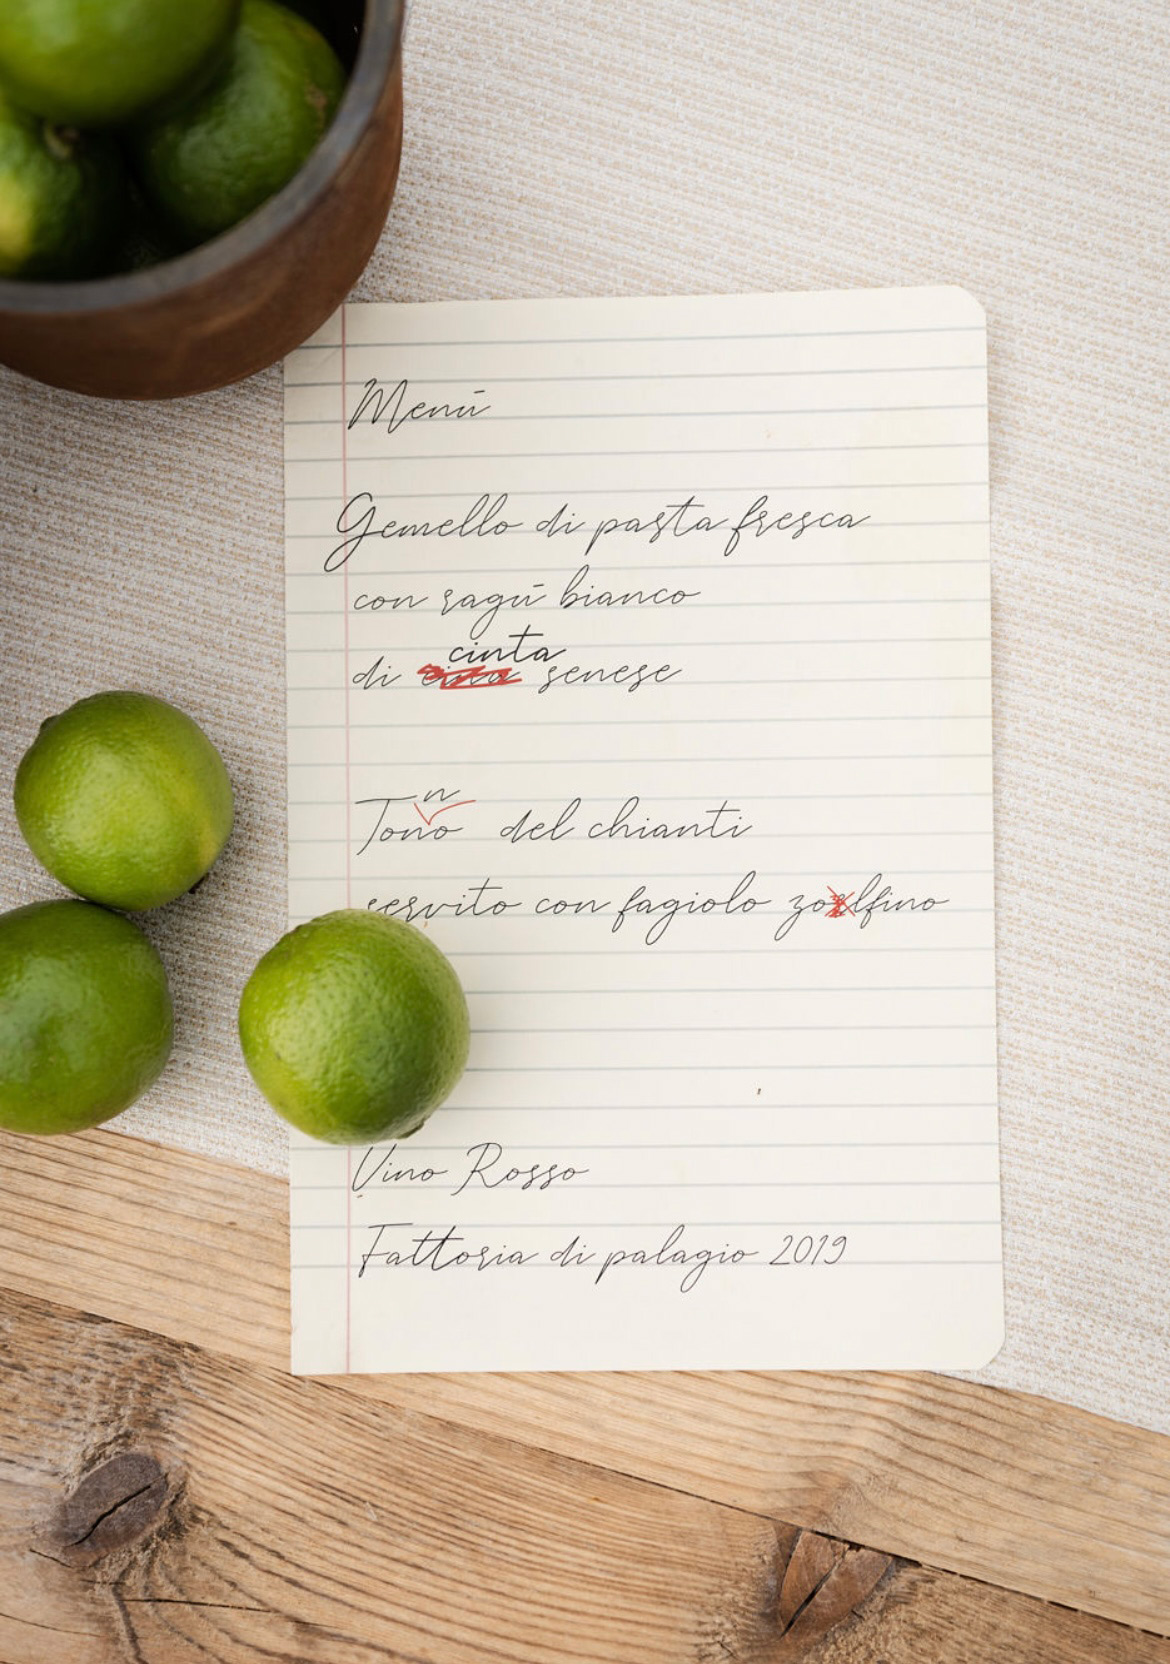 Menú
Gemello di pasta fresca
con ragú bianco
di cinta senese
Tonno del chianti
servito con fagiolo zolfino
Vino Rosso
Fattoria di palagio 2019